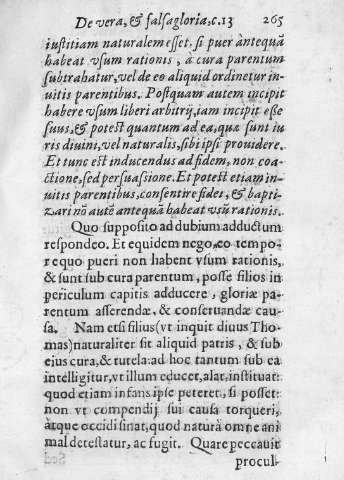 De vera, & falsa gloria, c.13 265
iustitiam naturalem esset, si puer antequã
habeat vsum rationis, a cura parentum
subtrahatur, vel de eo aliquid ordinetur in-
uitis parentibus. Postquam autem incipit
habere vsum liberi arbitrij, iam incipit esse
suus, & potest quantum ad ea, quæ sunt iu
ris diuini, vel naturalis, sibi ipsi prouidere.
Et tunc est inducendus ad fidem, non coa-
ctione, sed persuassione. Et potest etiam in-
uitis parentibus, consentire fidei, & bapti-
zari nõ autẽ antequã habeat vsũ rationis.
Quo supposito ad dubium adductum
respondeo. Et equidem nego, eo tempo-
re quo pueri non habent vsum rationis,
& sunt sub cura parentum, posse filios in
periculum capitis adducere, gloriæ pa-
rentum asserendæ, & conseruandæ cau-
sa. Nam etsi filius (vt inquit diuus Tho-
mas) naturaliter sit aliquid patris, & sub
eius cura, & tutela: ad hoc tantum sub ea
intelligitur, vt illum educet, alat, instituat:
quod etiam infans ipse peteret, si posset:
non vt compendij sui causa torqueri,
atque occidi sinat, quod natura omne ani
mal detestatur, ac fugit. Quare peccauit
procul